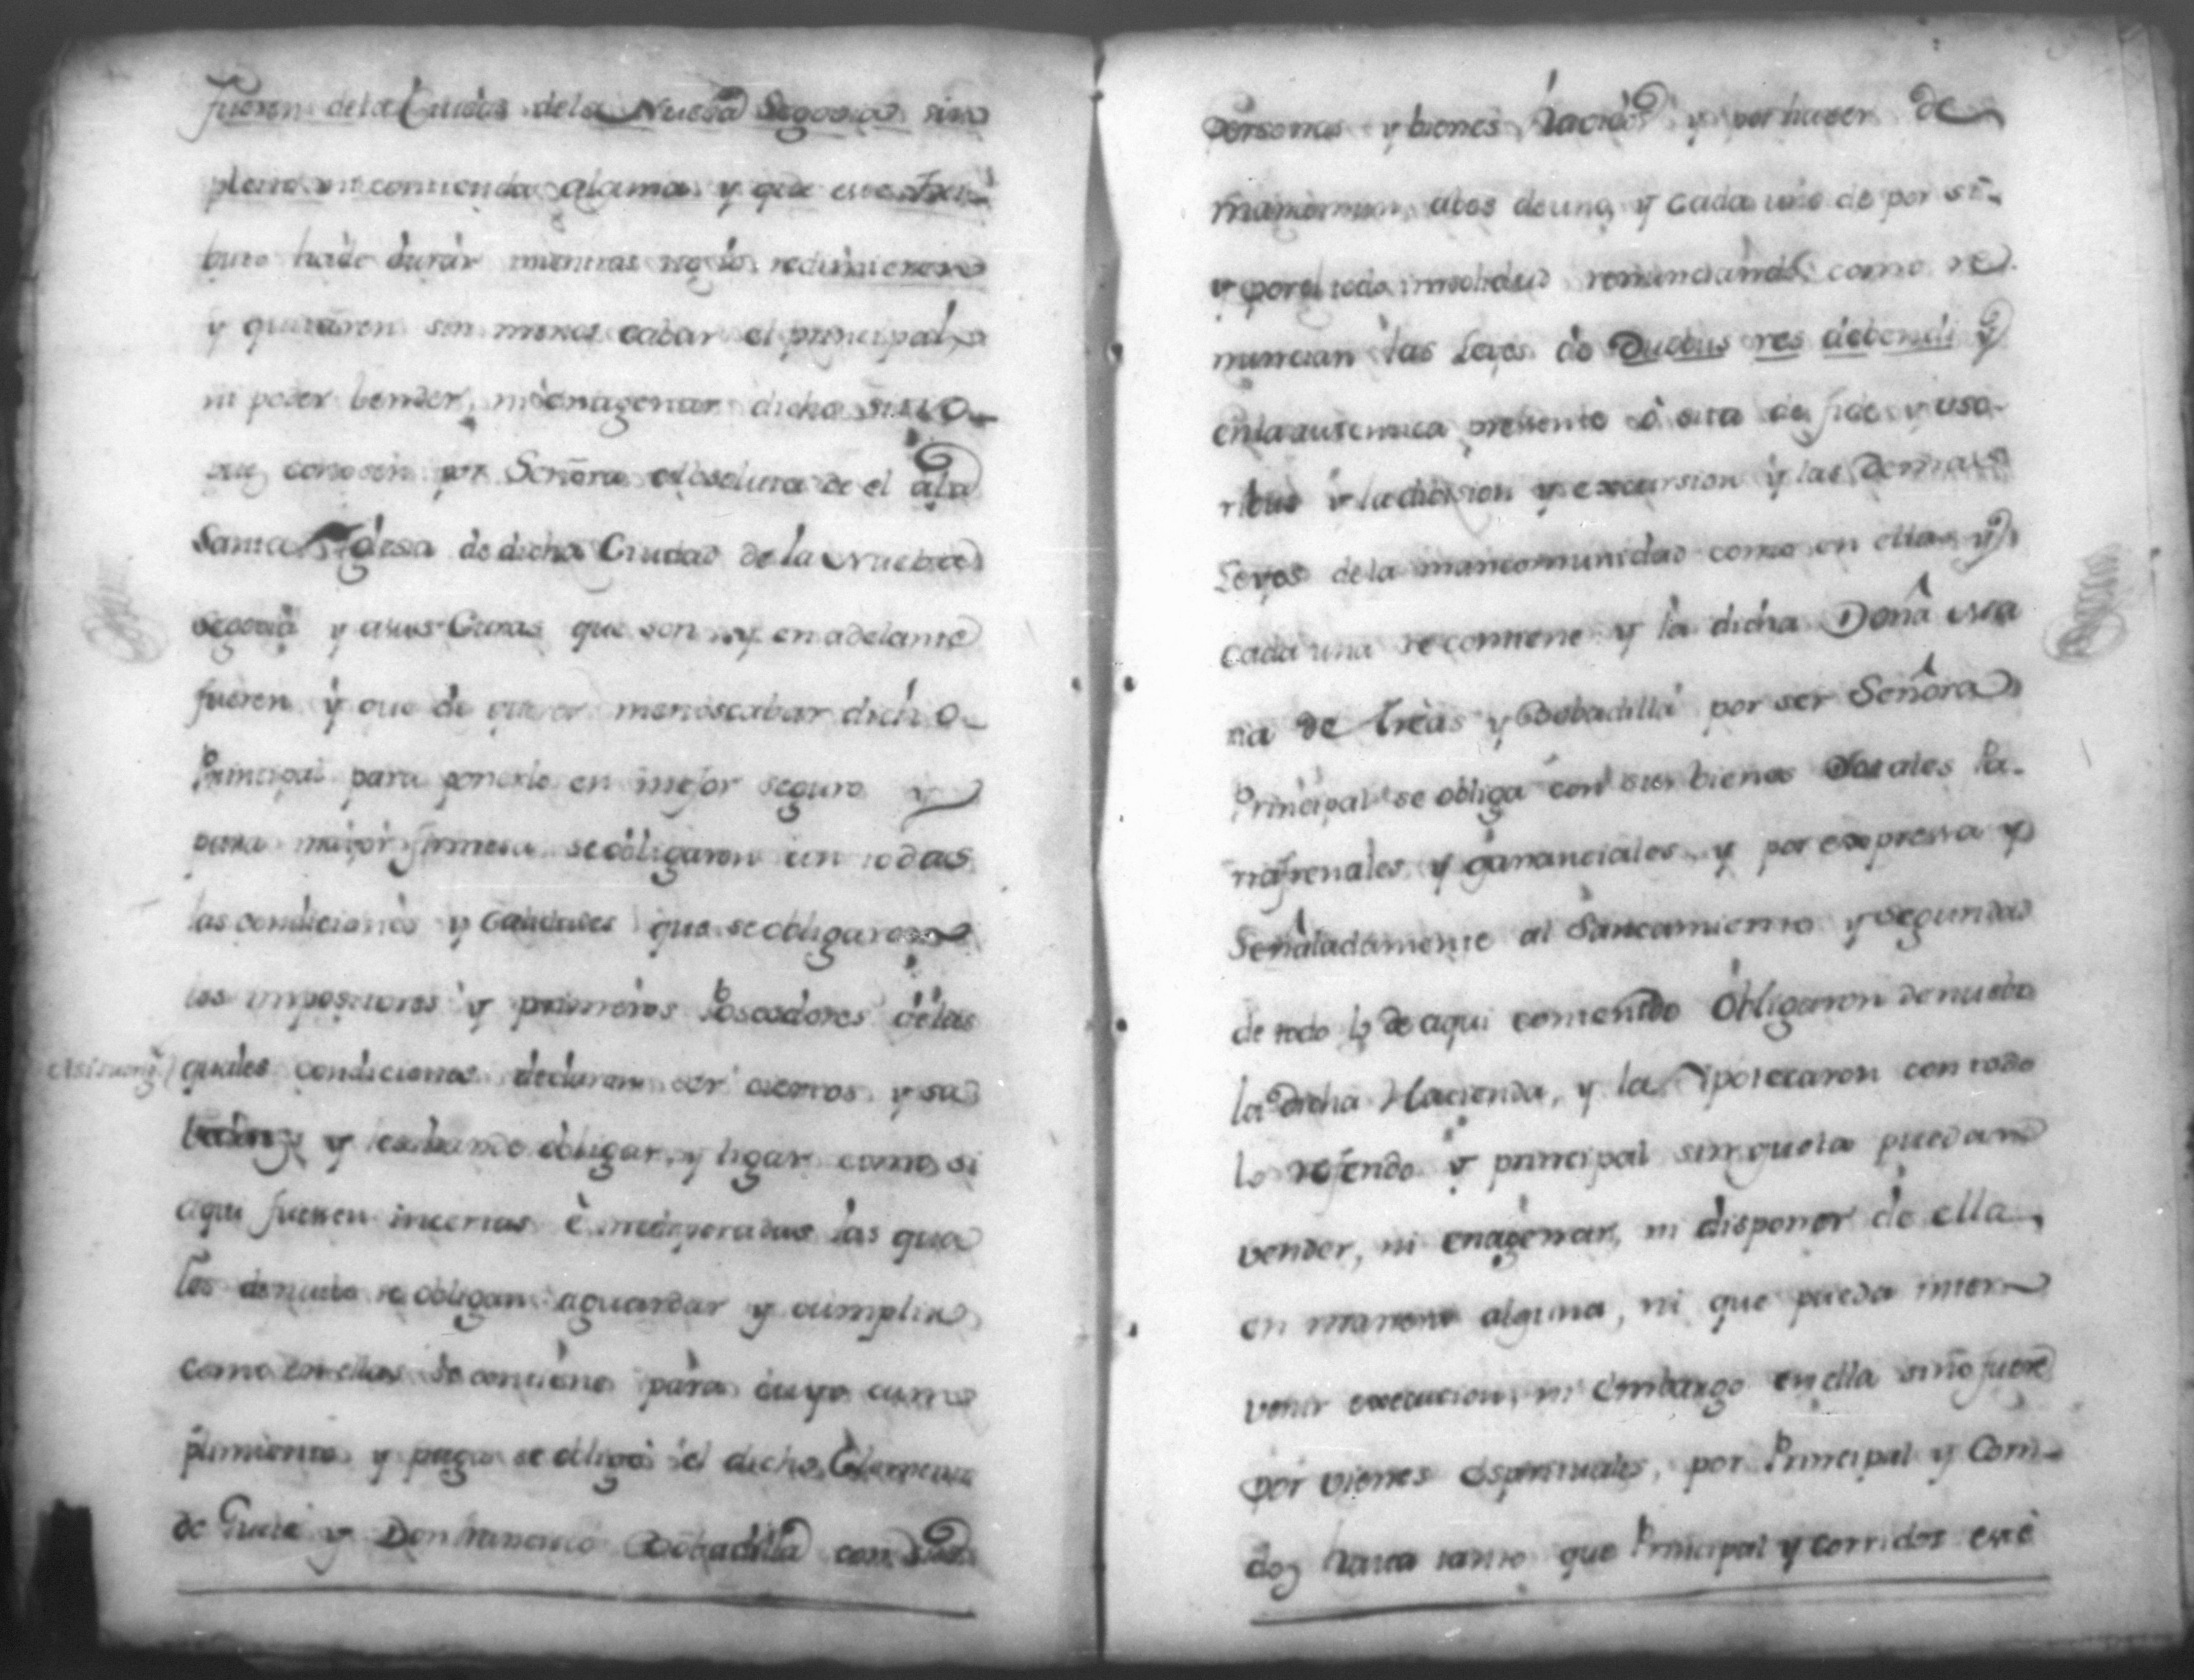 fueren dela Ciudad dela Nueba Segovia sin
pleito ni contienda alguna y que este tri
buto hade durar mientras no lo redimieren
y quitaren sin menos cabar el principal
ni poder bender, ni enagenar dicho sitio
que conosen por Señora absoluta de el ala
Santa Yglesa de dicha Ciudad de la Nueba
Segovia y asus Curas que son y en adelante
fueren y que de querer menoscabar dicho
Principal para ponerlo en mejor seguro y
para mayor firmesa se obligaron en todas
las condiciones y calidades que se obligaron
los impositores y primeros Poseedores delas
quales condiciones declaran ser ciertos y sa
y obligar, y ligar como si
aqui fuesen incertas è incorporadas las qua
les denuebo se obligan aguardar y cumplir
como en ellas se contiene para cuyo cum
plimiento y paga se obligó el dicho
de y Don Francisco Bobadilla con sus
Personas y bienes havidos y por haver de
mancomun, abos de uno, y cada uno de por si
y por el todo insolidud renunciando como re
nuncian las Leyes de Duobus res debendi y
enla autentica presente ô cita de fide yuso
ribus y la division y excursion y las demas
Leyes dela mancomunidad como en ellas y
cada una se contiene y la dicha Doña Ma
ria de Treas y Bobadilla por ser Señora
Principal se obliga con sus bienes Dotales Pa
rafrenales y gananciales, y por expressa y
Señaladamente al Saneamiento y Seguridad
de todo lo de aqui contenido Obligaron denuebo
la dicha Hacienda, y la Ypotecaron con todo
lo referido y principal sin quela puedan
vender, ni enagenar, ni disponer de ella
en manera alguna, ni que pueda inter
venir execucion, ni embargo en ella sino fuere
por vienes Espirituales, por Principal y Corri
dos hasta tanto que Principal y corridos esté